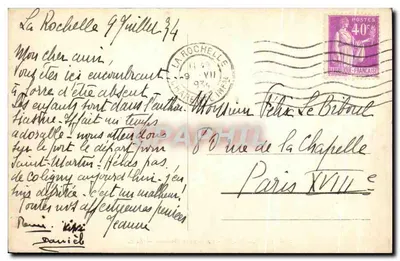 La Rochelle 9 Juillet 34
Mon cher ami,
Vous êtes ici encombrant
à force d'être absent.
Les enfants sont dans l'
fait un temps
adorable - nous
sur le port le départ pour
Saint-Martin. Hélas pas
de Coligny aujourd'hui: j'en
suis . C'est un malheur!
Toutes nos affectueuses pensées
Jeanne
Daniel
LA ROCHELLE
9 VII
POSTES
40c
Monsieur Félix Le Bibout
80 rue de la Chapelle
Paris XVIIIe